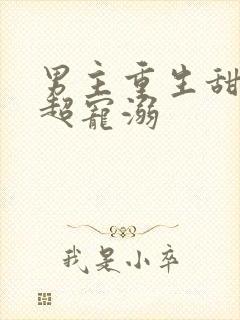 男主重生甜
超宠溺
我是小卒